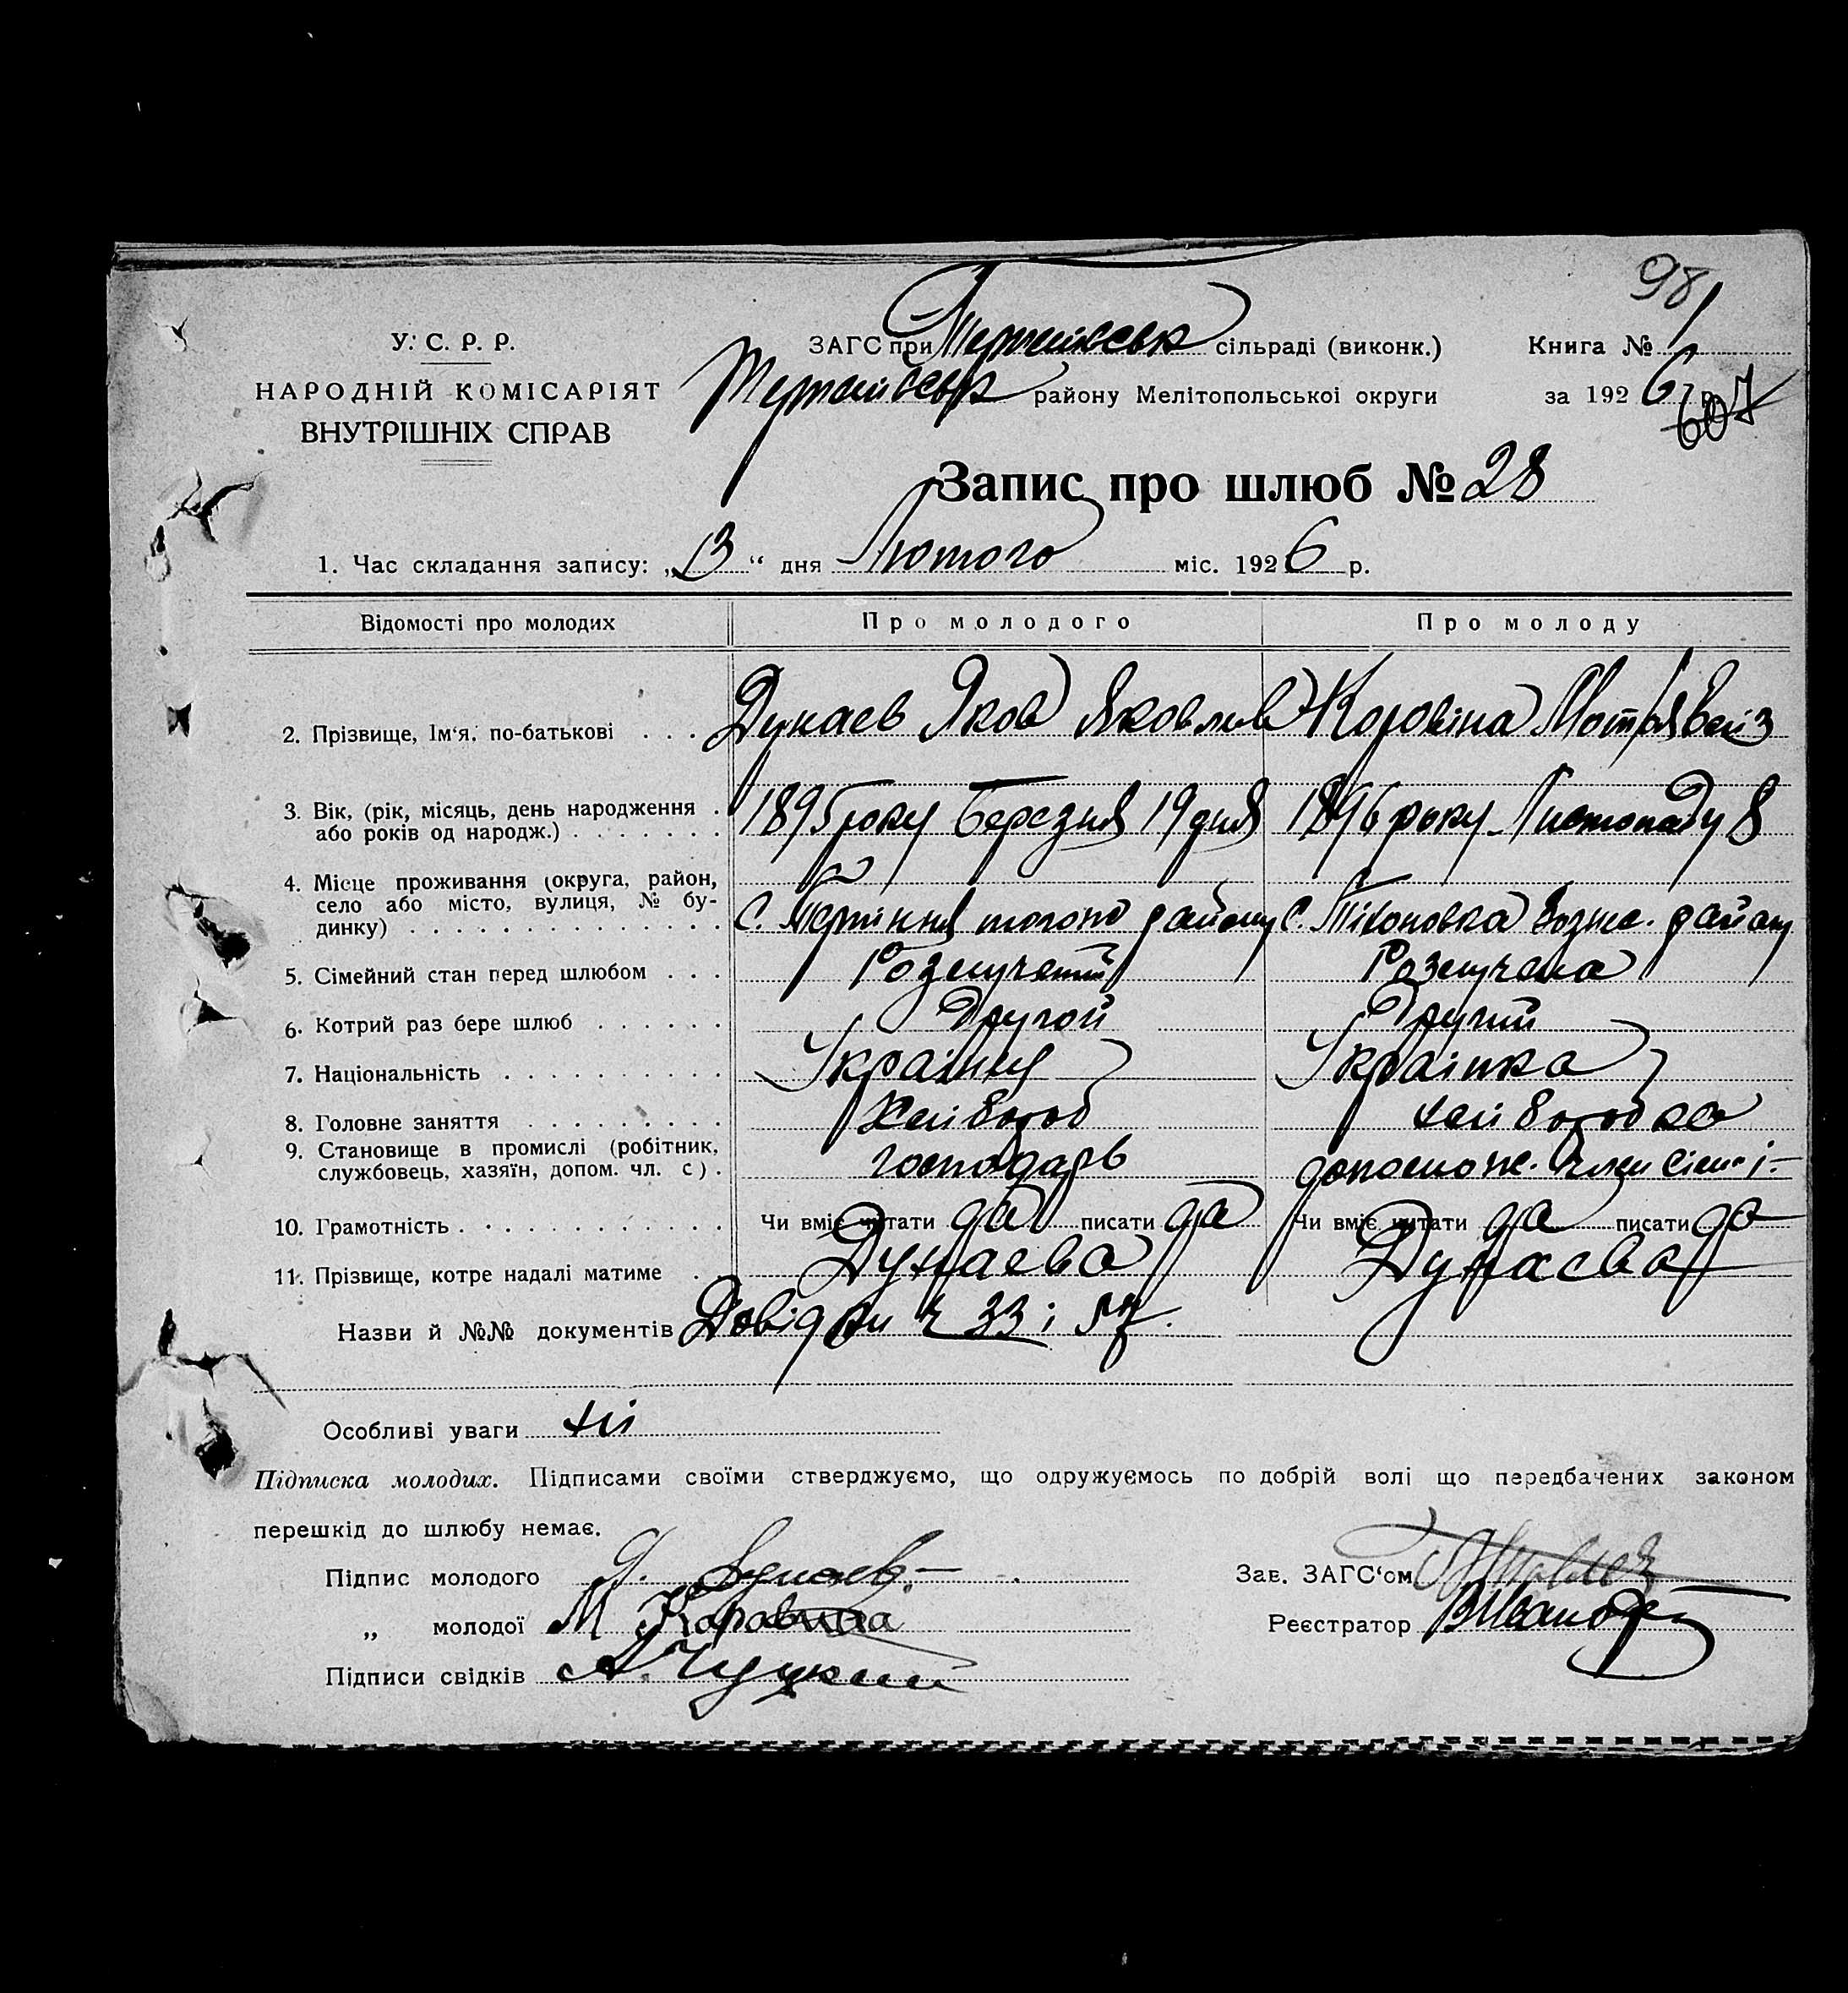 98
У. С. Р. Р.
НАРОДНІЙ КОМІСАРІЯТ
ВНУТРІШНІХ СПРАВ
ЗАГС при сільраді (виконк.)
району Мелітопольської округи
Книга № 1
за 1926 р.
Запис про шлюб № 28
1. Час складання запису: „13“ дня Лютого міс. 1926 р.
Відомості про молодих Про молодого Про молоду
2. Прізвище, Ім‘я, по-батькові . . . Дунаев Яков Яковлев Коровіна
3. Вік, (рік, місяць, день народження .
або років од народж.) . . . . . . . 1895 року Березня 19 дня 1896 року Листопаду 8
4. Місце проживання (округа, район,
село або місто, вулиця, № бу-
динку) . . . . . . . . . . . . . . . с. району с. району
5. Сімейний стан перед шлюбом . . . Розлучений Розлучена
6. Котрий раз бере шлюб . . . . . . Другой Другий
7. Національність . . . . . . . . . . Українец Українка
8. Головне заняття . . . . . . . . . Хлібороб хліборобка
9. Становище в промислі (робітник,
службовець, хазяїн, допом. чл. с) . господарь допомож. член сімї
10. Грамотність . . . . . . . . . . . . Чи вміє читати да писати да Чи вміє читати да писати да
11. Прізвище, котре надалі матиме . Дунаева Дунаева
Назви й №№ документів Довідки ч 33 і 57.
Особливі уваги ні
Підписка молодих. Підписами своїми стверджуємо, що одружуємось по добрій волі що передбачених законом
перешкід до шлюбу немає.
Підпис молодого Я. Дунаев
Зав. ЗАГС‘ом
„ молодої М Каравина
Реєстратор
Підписи свідків А.